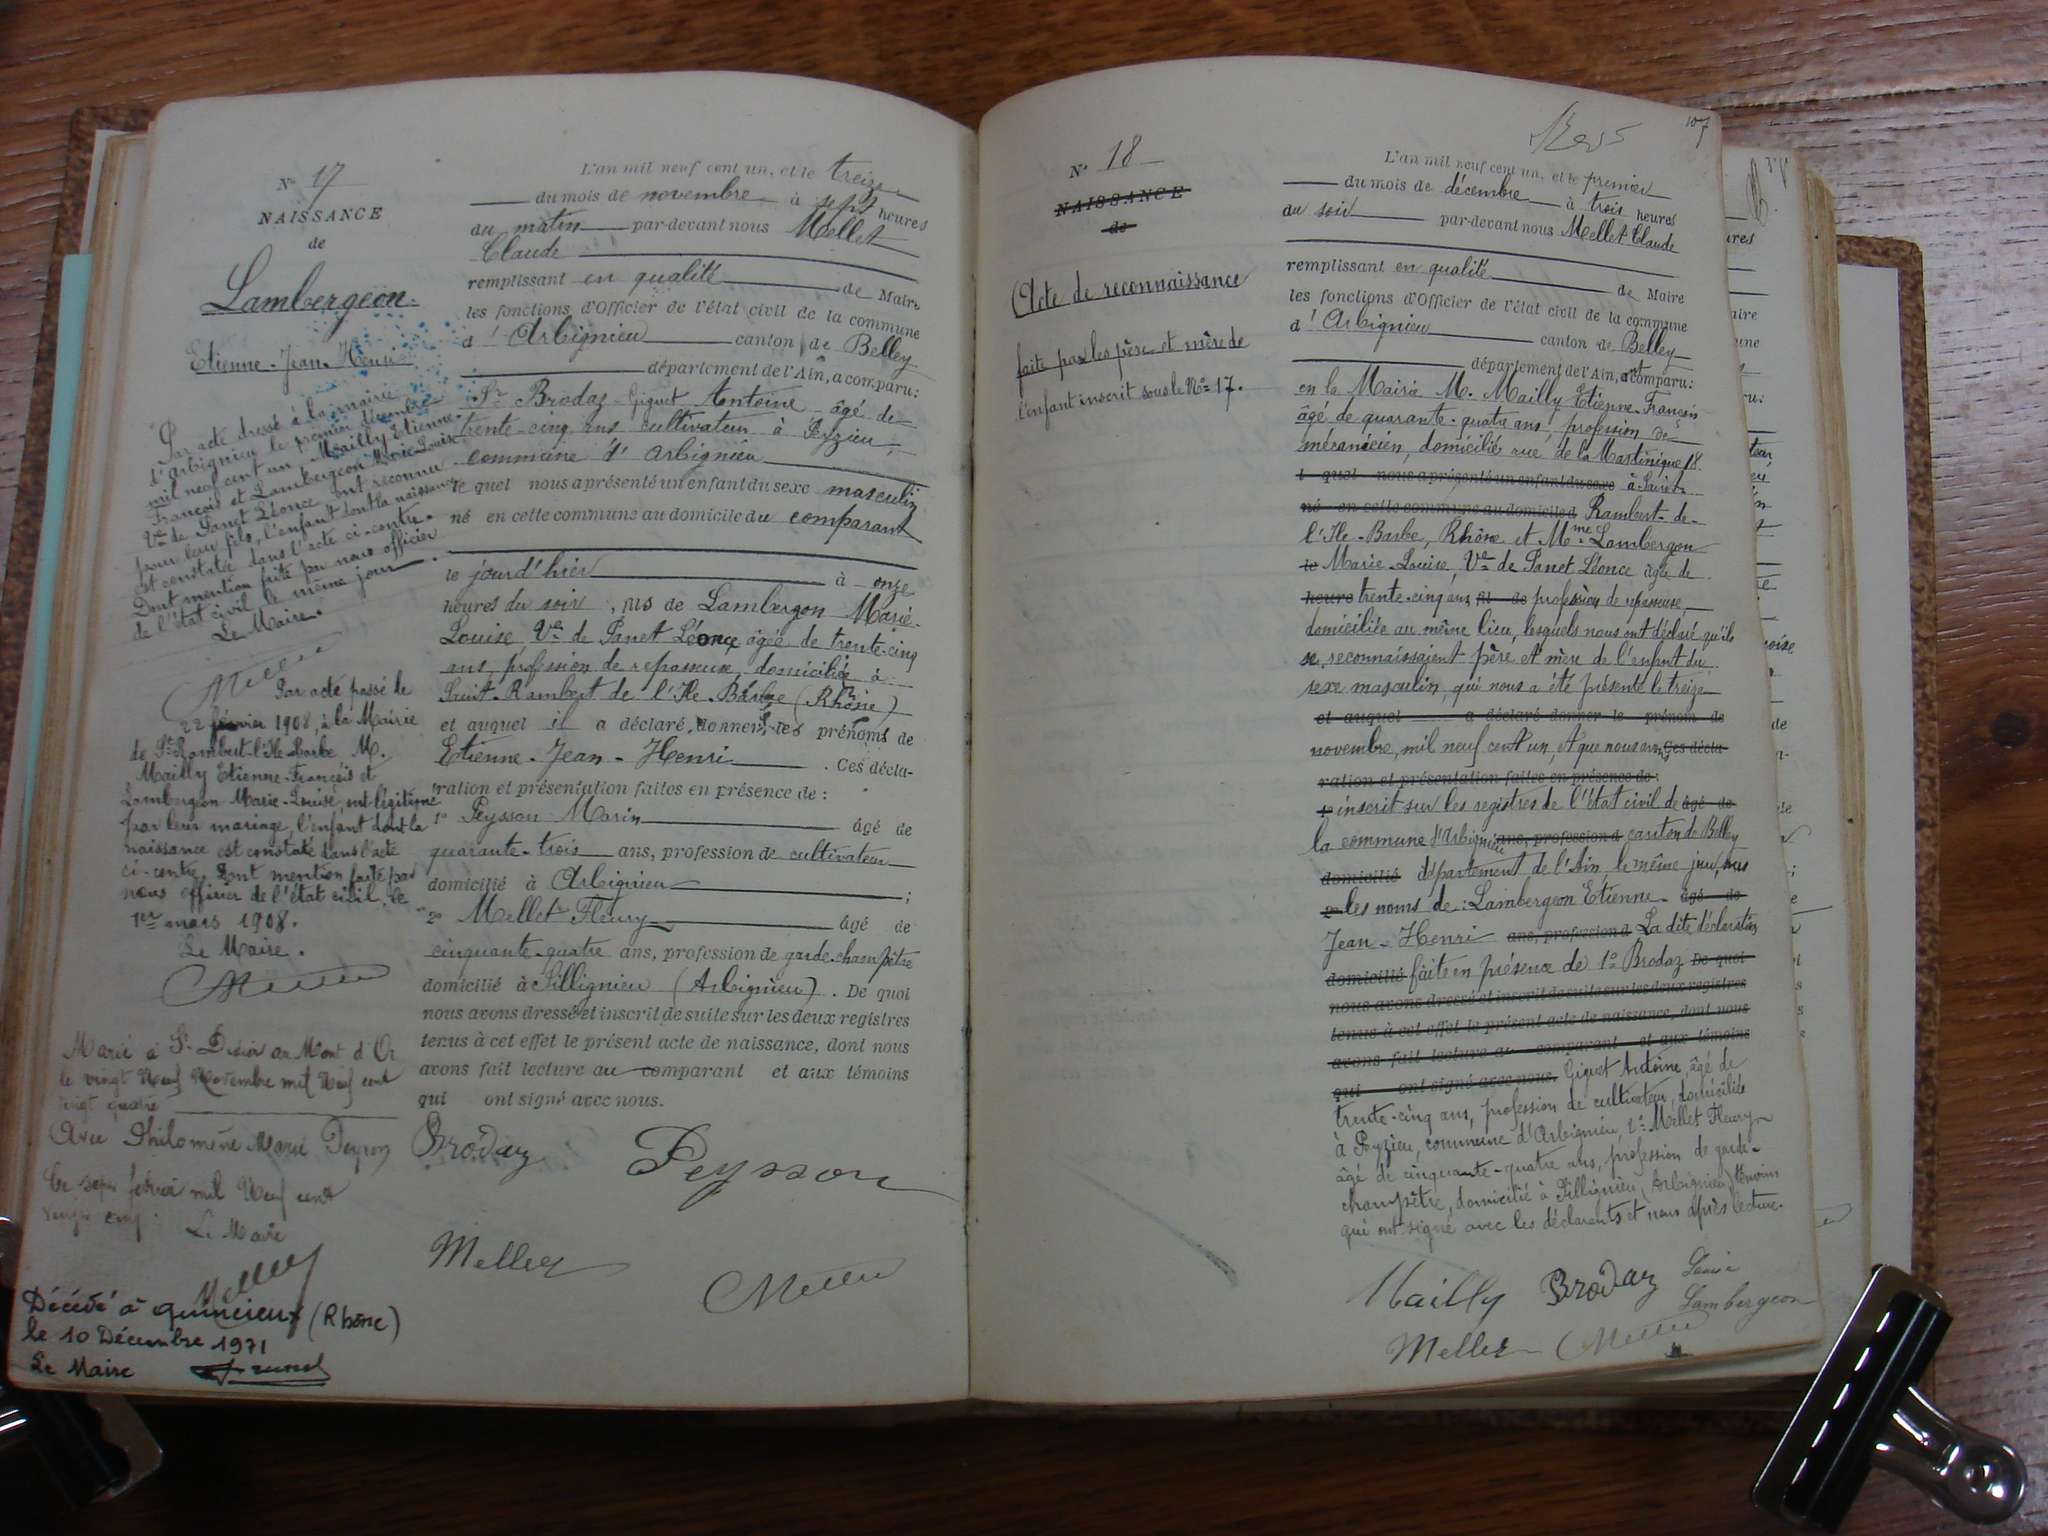 N° 17
NAISSANCE
de
Lambergeon
Etienne-Jean-Henri
Par acte dressé à la mairie
d'Arbignieu le premier décembre
mil neuf cent un Mailly Etienne-
François et Lambergeon Marie-Louise
Vve de Panet Léonce ont reconnu
pour leur fils, l'enfant dont la naissance
est constatée dans l'acte ci-contre.
Dont mention faite par nous officier
de l'état civil le même jour.
Le Maire.
Par acte passé le
22 février 1908, à la Mairie
de St Rambert-l'Ile-Barbe M.
Mailly Etienne-François et
Lambergeon Marie-Louise, ont légitimé
par leur mariage, l'enfant dont la
naissance est constatée dans l'acte
ci-contre. Dont mention faite par
nous officier de l'état civil, le
1er mars 1908.
Le Maire.
Marié à St Didier au Mont d'Or
le vingt Neuf Novembre mil Neuf cent
vingt quatre
Avec Philomène Marie Peyron
Ce sept février mil Neuf cent
vingt cinq
Le Maire
Décédé à Quincieux (Rhône)
le 10 Décembre 1971
Le Maire
L'an mil neuf cent un, et le treize
du mois de novembre à sept heures
du matin par-devant nous Mellet
Claude
remplissant en qualité de Maire
les fonctions d'Officier de l'état civil de la commune
d'Arbignieu canton de Belley
département de l'Ain, a comparu:
Sr Brodaz-Giguet Antoine âgé de
trente-cinq ans cultivateur à Peyzieu,
commune d'Arbignieu
le quel nous a présenté un enfant du sexe masculin
né en cette commune au domicile du comparant
le jourd'hier à onze
heures du soir, fils de Lambergon Marie-
Louise, Vve de Panet Léonce âgée de trente-cinq
ans, profession de repasseuse, domiciliée à
Saint-Rambert de l'Ile-Barbe (Rhône)
et auquel il a déclaré donner les prénoms de
Etienne-Jean-Henri. Ces décla-
ration et présentation faites en présence de:
1° Peysson Marin âgé de
quarante-trois ans, profession de cultivateur
domicilié à Arbignieu;
2° Mellet Fleury âgé de
cinquante-quatre ans, profession de garde-champêtre
domicilié à Sillignieu (Arbignieu). De quoi
nous avons dressé et inscrit de suite sur les deux registres
tenus à cet effet le présent acte de naissance, dont nous
avons fait lecture au comparant et aux témoins
qui ont signé avec nous.
Brodaz Peysson
Mellet
107
N° 18
NAISSANCE
de
Acte de reconnaissance
faite par les père et mère de
l'enfant inscrit sous le N° 17.
L'an mil neuf cent un, et le premier
du mois de décembre à trois heures
du soir par-devant nous Mellet Claude
remplissant en qualité de Maire
les fonctions d'Officier de l'état civil de la commune
d'Arbignieu canton de Belley
département de l'Ain, ont comparu:
en la Mairie M. Mailly Etienne-François
âgé de quarante-quatre ans, profession de
mécanicien, domicilié rue de la Martinique 18.
l quel nous a présenté un enfant du sexe à Saint
né en cette commune au domicile d Rambert-de-
l'Ile-Barbe, Rhône et Mme Lambergon
le Marie-Louise, Vve de Panet Léonce âgée de
heure trente-cinq ans, fil de profession de repasseuse,
domiciliée au même lieu, lesquels nous ont déclaré qu'ils
se reconnaissaient père et mère de l'enfant du
sexe masculin, qui nous a été présenté le treize
et auquel a déclaré donner le prénom de
novembre, mil neuf cent un, et que nous avons Ces décla-
ration et présentation faites en présence de:
1° inscrit sur les registres de l'état civil de âgé de
la commune d'Arbignieu ans, profession d canton de Belley
domicilié département de l'Ain, le même jour, sous
2° les noms de: Lambergeon Etienne- âgé de
Jean-Henri ans, profession d La dite déclaration
domicilié faite en présence de 1° Brodaz De quoi
nous avons dressé et inscrit de suite sur les deux registres
tenus à cet effet le présent acte de naissance, dont nous
avons fait lecture au comparant et aux témoins
qui ont signé avec nous. Giguet Antoine, âgé de
trente-cinq ans, profession de cultivateur, domicilié
à Peyzieu, commune d'Arbignieu, 2° Mellet Fleury
âgé de cinquante-quatre ans, profession de garde-
champêtre, domicilié à Sillignieu (Arbignieu) témoins
qui ont signé avec les déclarants et nous après lecture.
Mailly Brodaz Louise
Lambergeon
Mellet